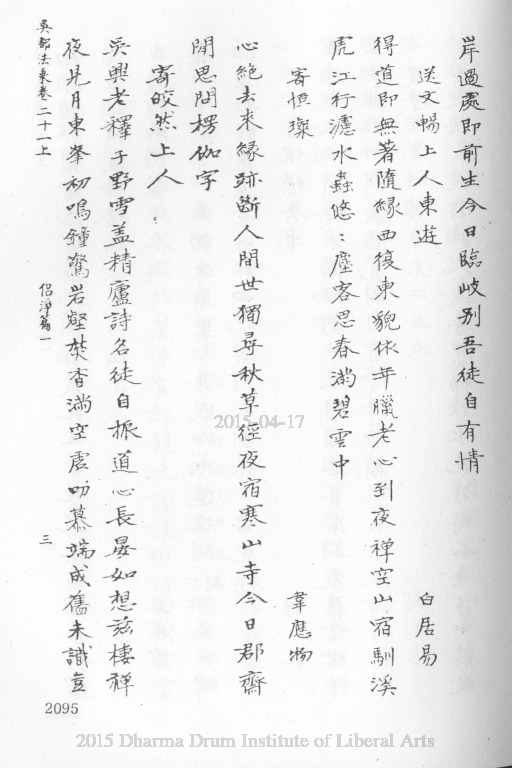 岸過處即前生今日臨岐別吾徒自有情
送文暢上人東遊
白居易
得道即無著隨緣西復東貌依年臘老心到夜禪空山宿馴溪
虎江行濾水蟲悠〻塵客思春滿碧雲中
寄恒璨
韋應物
心絕去來緣跡斷人間世獨尋秋草徑夜宿寒山寺今日郡齋
閒思問楞伽字
寄皎然上人
吳興老釋子野雪盖精廬詩名徒自振道心長晏如想茲棲禪
夜見月東峯初鳴鐘驚岩壑焚香滿空虛叨慕端成舊未識豈
吳都法乘卷二十一上
侶淨篇一
三
2095
2015-04-17
2015 Dharma Drum Institute of Liberal Arts